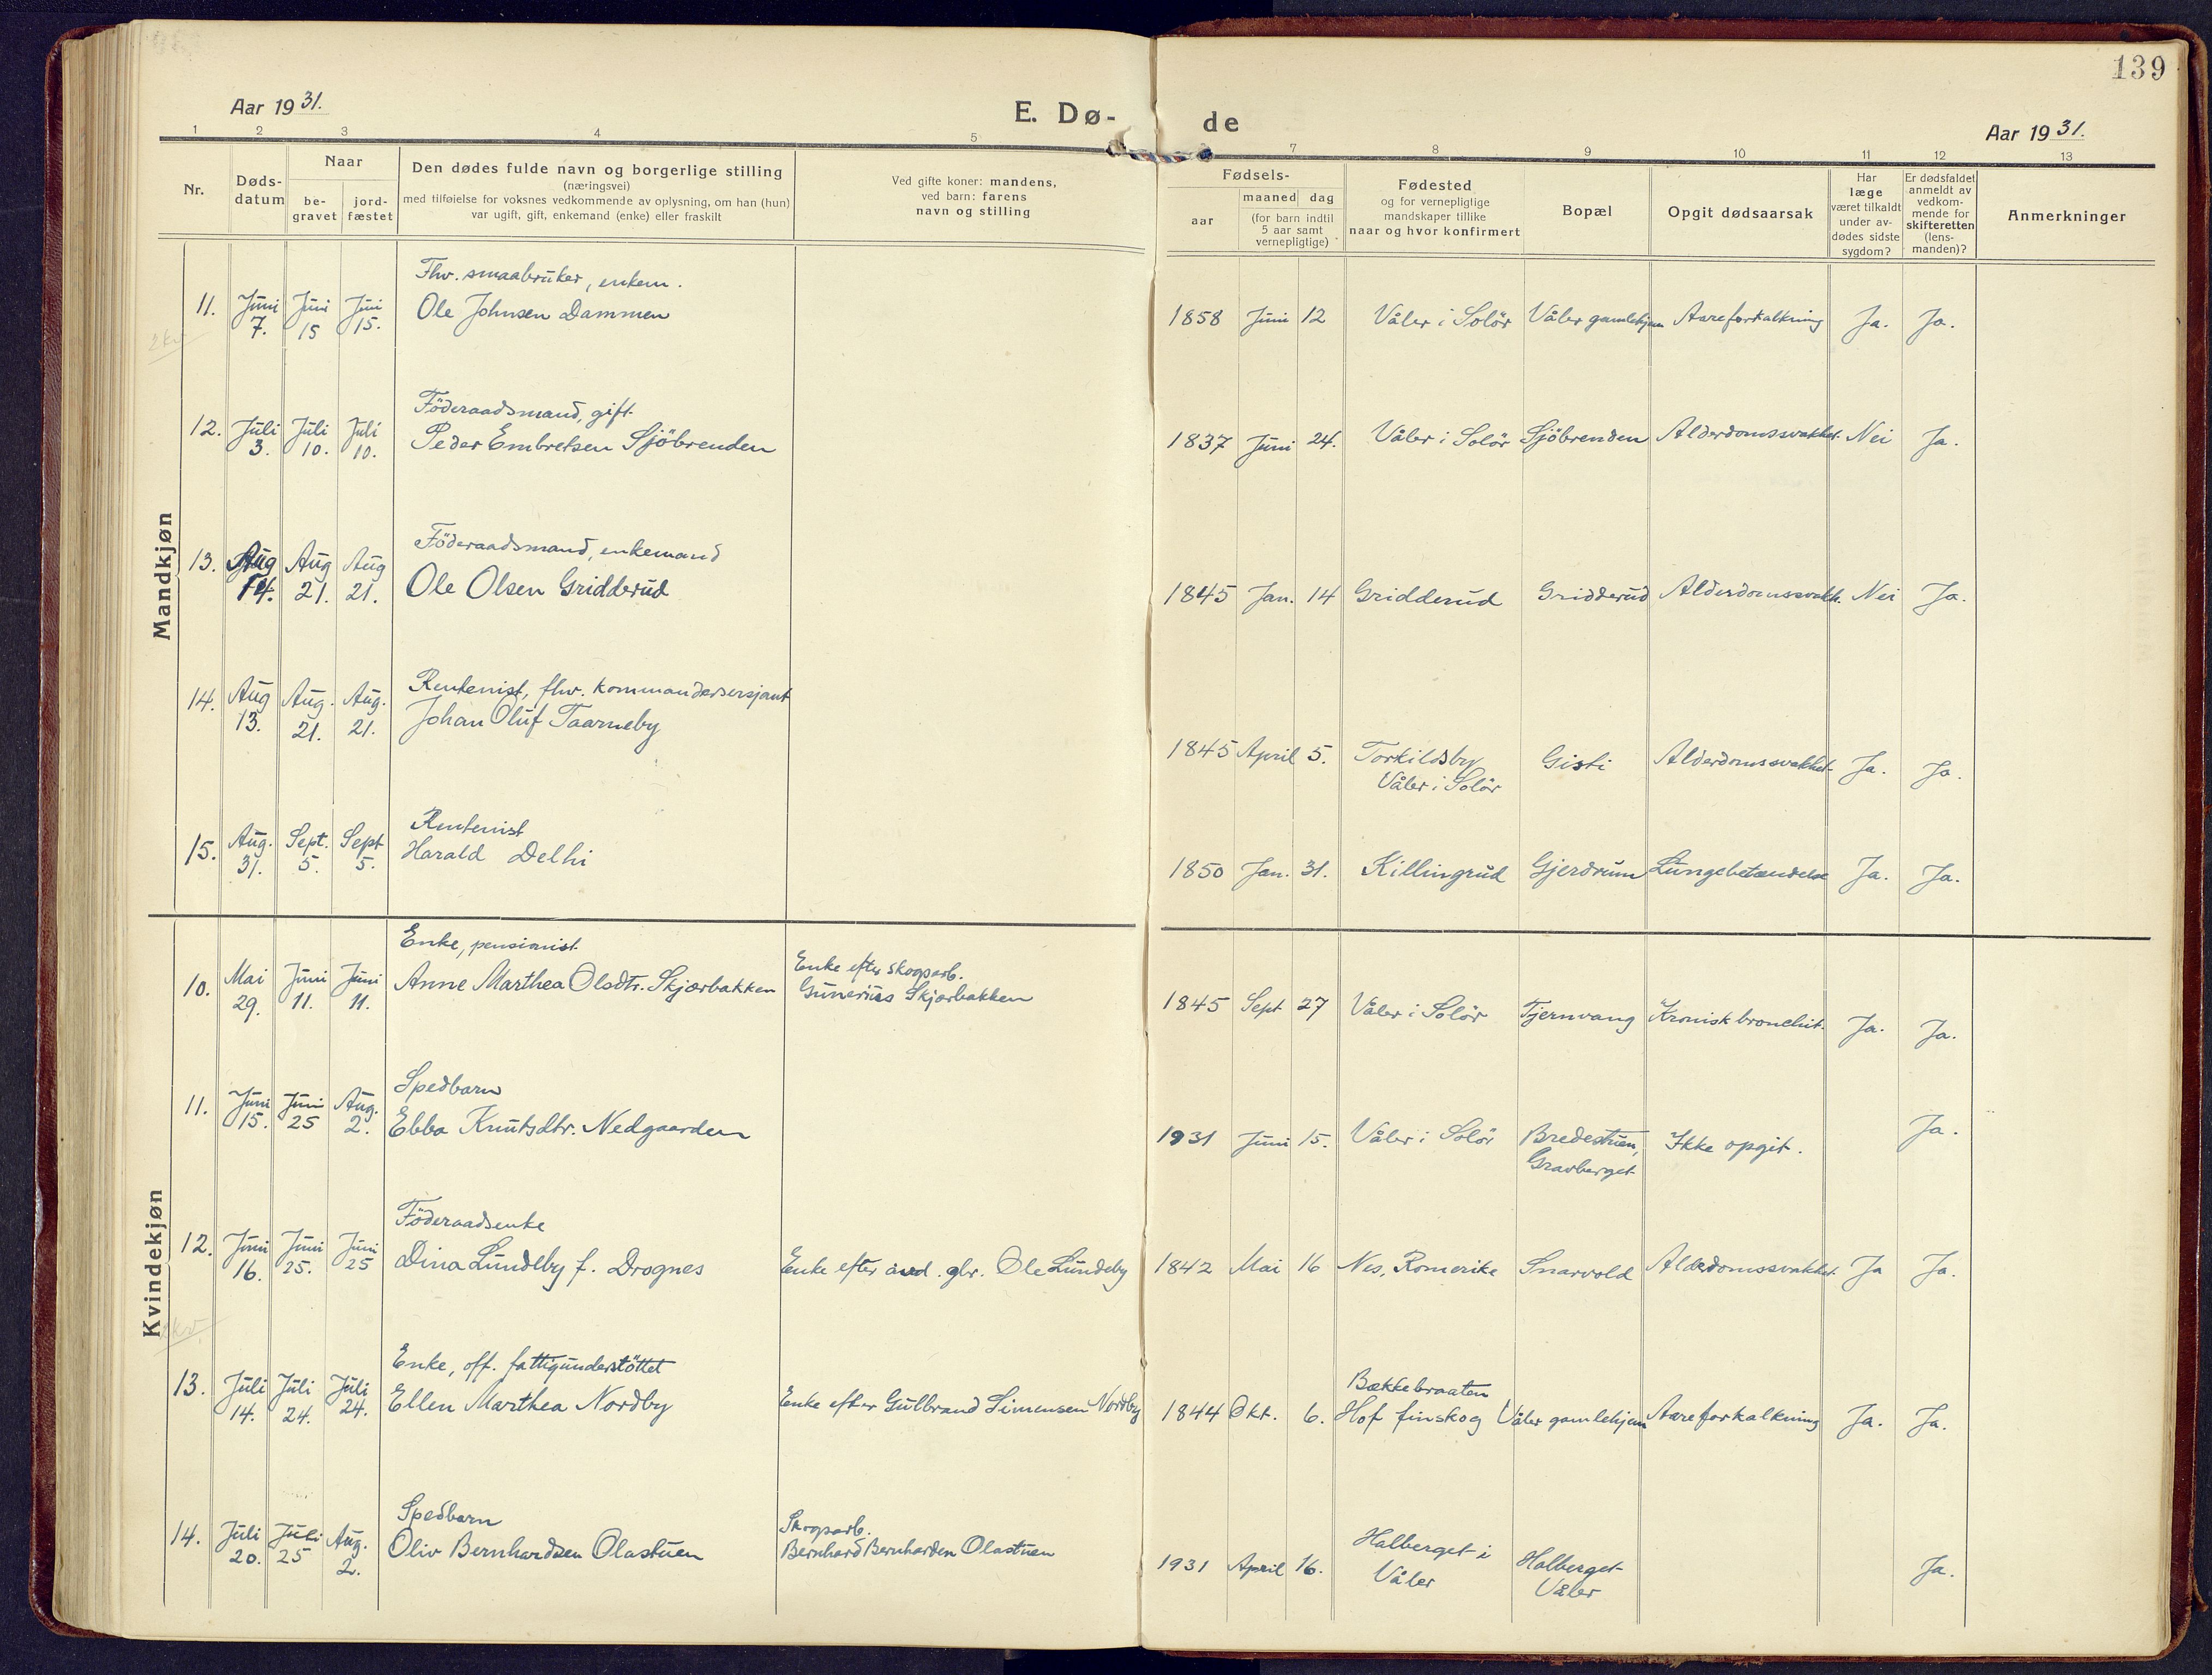 139
Aar 1931.
E. Dø-
de
Aar 1931.
1 2 3 4 5
7 8 9 10 11 12 13
Nr.
Døds-
datum
Naar
be-
gravet
jord-
fæstet
Den dødes fulde navn og borgerlige stilling
(næringsvei)
med tilføielse for voksnes vedkommende av oplysning, om han (hun)
var ugift, gift, enkemand (enke) eller fraskilt
Ved gifte koner: mandens,
ved barn: farens
navn og stilling
Fødsels-
aar
maaned dag
(for barn indtil
5 aar samt
vernepligtige)
Fødested
og for vernepligtige
mandskaper tillike
naar og hvor konfirmert
Bopæl
Opgit dødsaarsak
Har
læge
været tilkaldt
under av-
dødes sidste
sygdom?
Er dødsfaldet
anmeldt av
vedkom-
mende for
skifteretten
(lens-
manden)?
Anmerkninger
Mandkjøn
Fhv. smaabruker, enkem.
11. Juni Juni Juni Ole Johnsen Dammen
7. 15 15.
1858 Juni 12 Våler i Solör Våler gamlehjem Aareforkalkning Ja. Ja.
Föderaadsmand, gift.
12. Juli Juli Juli Peder Embretsen Sjöbrenden
3. 10. 10.
1837 Juni 24. Våler i Solör Sjöbrenden Alderdomssvakhet. Nei Ja.
Föderaadsmand, enkemand
13. Aug Aug Aug Ole Olsen Gridderud
14. 21. 21.
1845 Jan. 14 Gridderud Gridderud Alderdomssvakh. Nei Ja.
Rentenist, fhv. kommandersersjant
14. Aug Aug. Aug. Johan Oluf Taarneby
13. 21. 21.
1845 April 5. Torkildsby Gisti Alderdomssvakhet. Ja. Ja.
Våler i Solör
Rentenist
15. Aug. Sept. Sept Harald Delhi
31. 5. 5.
1850 Jan. 31. Killingrud Gjerdrum Lungebetændelse Ja. Ja.
Kvindekjøn
Enke, pensionist
10. Mai Juni Juni Anne Marthea Olsdtr. Skjærbakken
29. 11. 11.
Enke efter skogsarb.
Gunerius Skjærbakken
1845 Sept 27 Våler i Solör Tjernvang Kronisk bronchit. Ja. Ja.
Spedbarn
11. Juni Juni Aug. Ebba Knutsdtr. Nedgaarden
15. 25 2.
1931 Juni 15. Våler i Solör Bredestuen, Ikke opgit. Ja.
Gravberget
Föderaadsenke
12. Juni Juni Juni Dina Lundeby f. Drognes Enke efter avd. gbr. Ole Lundeby
16. 25. 25
1842 Mai 16 Nes, Romerike Snarvold Alderdomssvakhet. Ja Ja.
Enke, off. fattigunderstöttet
13. Juli Juli Juli Ellen Marthea Nordby Enke efter Gulbrand Simensen Nordby
14. 24. 24.
Bækkebraaten
1844 Okt. 6. Hof finskog Våler gamlehjem Aareforkalkning Ja. Ja.
Spedbarn
14. Juli Juli Aug. Oliv Bernhardsen Olastuen
20. 25 2.
Skogsarb.
Bernhard Bernhardsen Olastuen
1931 April 16. Halberget i Halberget Ja.
Våler Våler